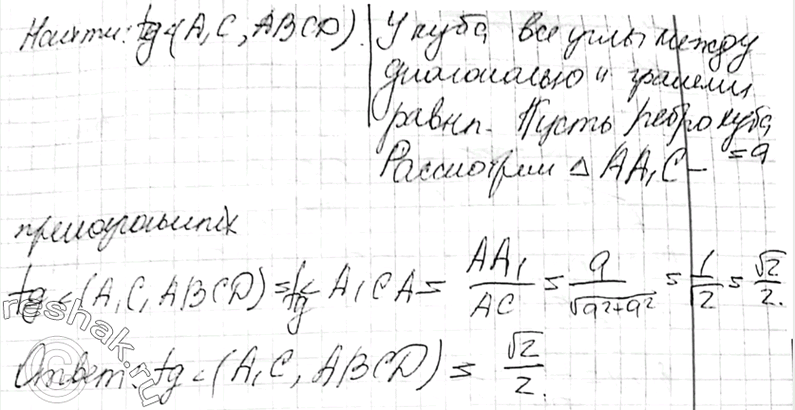 Найти: tg∠(A₁C, ABCD).
У куба все углы между
диагональю и гранями
равны. Пусть ребро куба
= a
Рассмотрим △ AA₁C –
прямоугольник
tg∠(A₁C, ABCD) = tg∠A₁CA = AA₁/AC = a/√(a²+a²) = 1/√2 = √2/2.
Ответ: tg∠(A₁C, ABCD) = √2/2.
reshak.ru